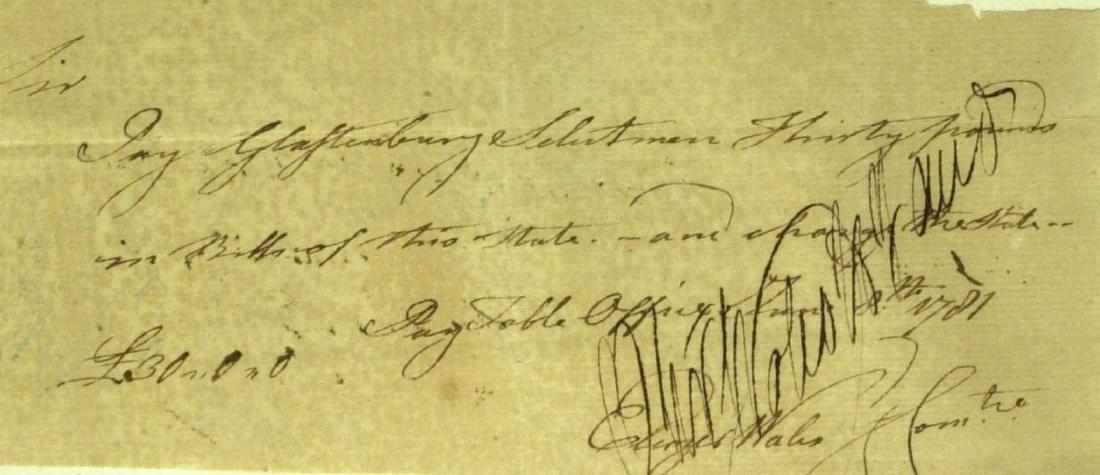 Sir
Pay Glastenbury Selectmen Thirty pounds
in Bills of this State. – and charge the State –
Pay Table Office June 8th 1781
£30 „ 0 „ 0
Eleazer Wales Comtee